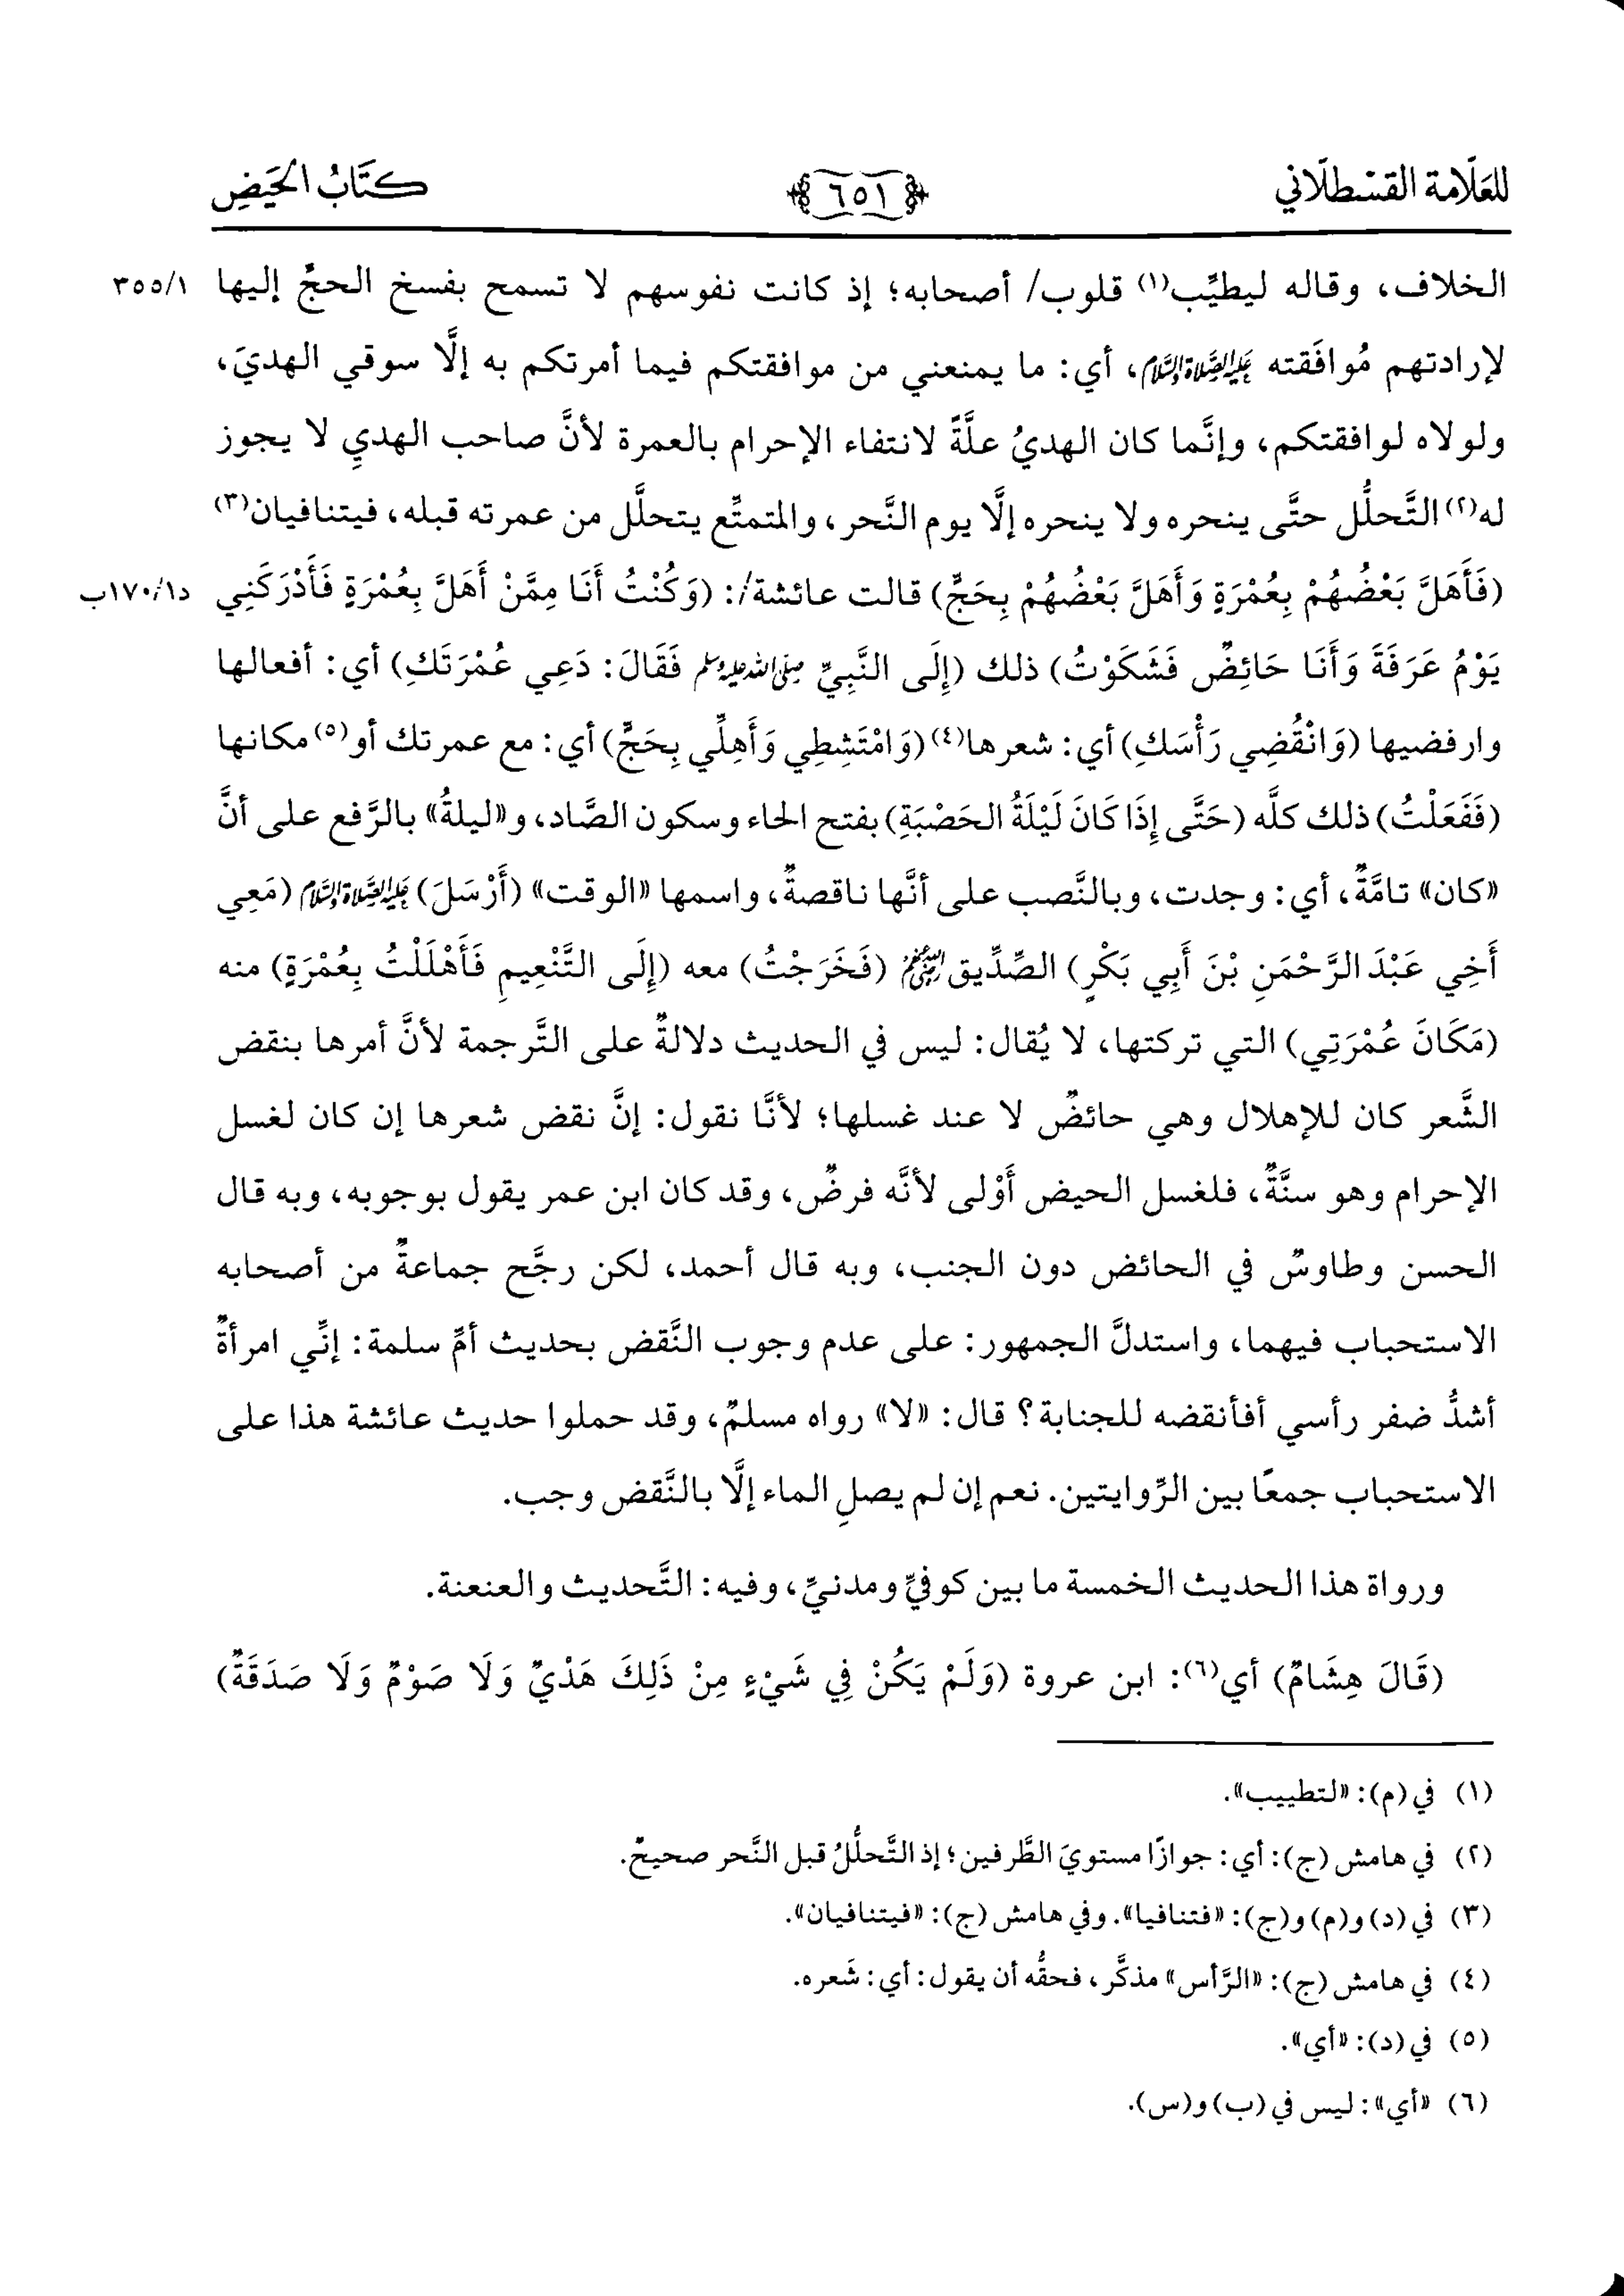 للعلّامة القسطلّاني
﴿٦٥١﴾
كتَابُ الحَيضِ
الخلاف، وقاله ليطيِّب(١) قلوب/ أصحابه؛ إذ كانت نفوسهم لا تسمح بفسخ الحجِّ إليها
٣٥٥/١
لإرادتهم مُوافَقته عَلَيْهِ الصَّلَاةُ وَالسَّلَامُ، أي: ما يمنعني من موافقتكم فيما أمرتكم به إلَّا سوقي الهديَ،
ولولاه لوافقتكم، وإنَّما كان الهديُ علَّةً لانتفاء الإحرام بالعمرة لأنَّ صاحب الهديِ لا يجوز
له(٢) التَّحلُّل حتَّى ينحره ولا ينحره إلَّا يوم النَّحر، والمتمتِّع يتحلَّل من عمرته قبله، فيتنافيان(٣)
(فَأَهَلَّ بَعْضُهُمْ بِعُمْرَةٍ وَأَهَلَّ بَعْضُهُمْ بِحَجٍّ) قالت عائشة/: (وَكُنْتُ أَنَا مِمَّنْ أَهَلَّ بِعُمْرَةٍ فَأَدْرَكَنِي
د١٧٠/١ب
يَوْمُ عَرَفَةَ وَأَنَا حَائِضٌ فَشَكَوْتُ) ذلك (إِلَى النَّبِيِّ صَلَّى اللهُ عَلَيْهِ وَسَلَّمَ فَقَالَ: دَعِي عُمْرَتَكِ) أي: أفعالها
وارفضيها (وَانْقُضِي رَأْسَكِ) أي: شعرها(٤) (وَامْتَشِطِي وَأَهِلِّي بِحَجٍّ) أي: مع عمرتك أو(٥) مكانها
(فَفَعَلْتُ) ذلك كلَّه (حَتَّى إِذَا كَانَ لَيْلَةُ الحَصْبَةِ) بفتح الحاء وسكون الصَّاد، و«ليلةُ» بالرَّفع على أنَّ
«كان» تامَّةٌ، أي: وجدت، وبالنَّصب على أنَّها ناقصةٌ، واسمها «الوقت» (أَرْسَلَ) عَلَيْهِ الصَّلَاةُ وَالسَّلَامُ (مَعِي
أَخِي عَبْدَ الرَّحْمَنِ بْنَ أَبِي بَكْرٍ) الصِّدِّيق رضي الله عنهم (فَخَرَجْتُ) معه (إِلَى التَّنْعِيمِ فَأَهْلَلْتُ بِعُمْرَةٍ) منه
(مَكَانَ عُمْرَتِي) التي تركتها، لا يُقال: ليس في الحديث دلالةٌ على التَّرجمة لأنَّ أمرها بنقض
الشَّعر كان للإهلال وهي حائضٌ لا عند غسلها؛ لأنَّا نقول: إنَّ نقض شعرها إن كان لغسل
الإحرام وهو سنَّةٌ، فلغسل الحيض أَوْلى لأنَّه فرضٌ، وقد كان ابن عمر يقول بوجوبه، وبه قال
الحسن وطاوسٌ في الحائض دون الجنب، وبه قال أحمد، لكن رجَّح جماعةٌ من أصحابه
الاستحباب فيهما، واستدلَّ الجمهور: على عدم وجوب النَّقض بحديث أمِّ سلمة: إنِّي امرأةٌ
أشدُّ ضفر رأسي أفأنقضه للجنابة؟ قال: «لا» رواه مسلمٌ، وقد حملوا حديث عائشة هذا على
الاستحباب جمعًا بين الرِّوايتين. نعم إن لم يصلِ الماء إلَّا بالنَّقض وجب.
ورواة هذا الحديث الخمسة ما بين كوفيٍّ ومدنيٍّ، وفيه: التَّحديث والعنعنة.
(قَالَ هِشَامٌ) أي(٦): ابن عروة (وَلَمْ يَكُنْ فِي شَيْءٍ مِنْ ذَلِكَ هَدْيٌ وَلَا صَوْمٌ وَلَا صَدَقَةٌ)
(١) في (م): «لتطييب».
(٢) في هامش (ج): أي: جوازًا مستويَ الطَّرفين؛ إذ التَّحلُّلُ قبل النَّحر صحيحٌ.
(٣) في (د) و(م) و(ج): «فتنافيا». وفي هامش (ج): «فيتنافيان».
(٤) في هامش (ج): «الرَّأس» مذكَّر، فحقُّه أن يقول: أي: شَعره.
(٥) في (د): «أي».
(٦) «أي»: ليس في (ب) و(س).